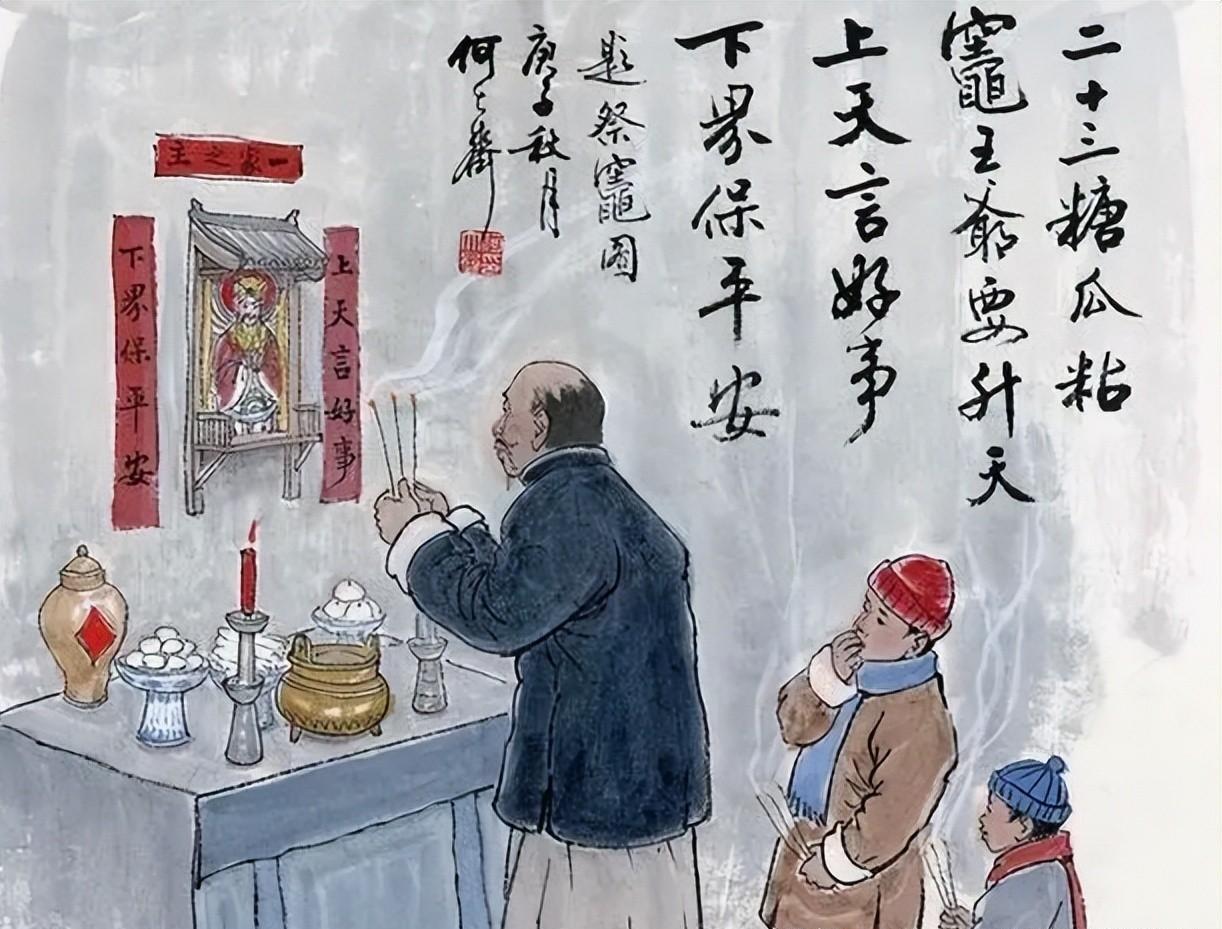 二十三糖瓜粘
竈王爺要升天
上天言好事
下界保平安
題祭竈图
庚子秋月
何
一家之主
上天言好事
下界保平安